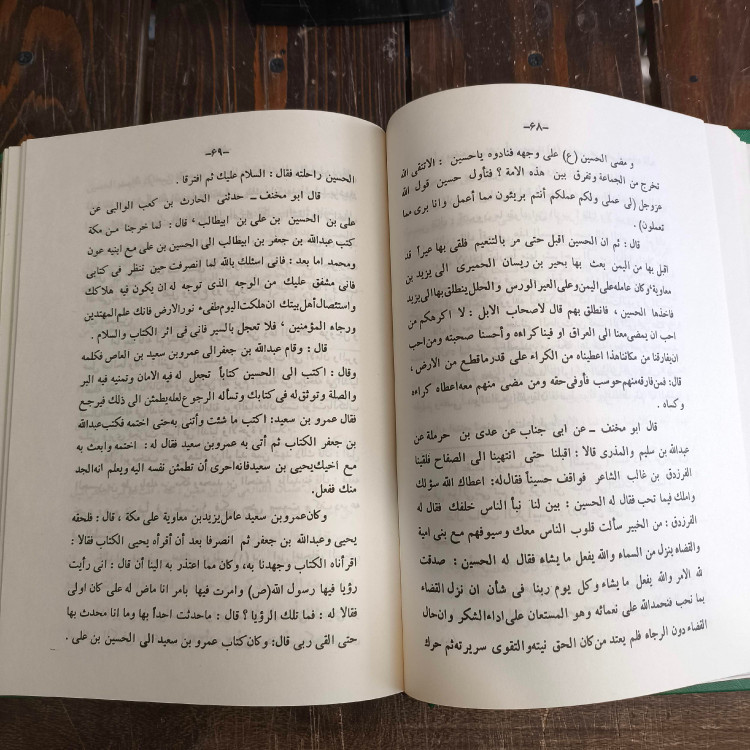 -٦٨-
و مضى الحسين (ع) على وجهه فنادوه ياحسين : الاتتقى الله
تخرج من الجماعة وتفرق بين هذه الامة ؟ فتأول حسين قول الله
عزوجل (لى عملى ولكم عملكم أنتم بريئون مما أعمل وانا برى مما
تعملون) .
قال : ثم ان الحسين اقبل حتى مر بالتنعيم فلقى بها عيراً قد
اقبل بها من اليمن بعث بها بحير بن ريسان الحميرى الى يزيد بن
معاوية ، وكان عامله على اليمن وعلى العير الورس والحلل ينطلق بها الى يزيد
فاخذها الحسين ، فانطلق بهم قال لاصحاب الابل : لا اكرهكم من
احب ان يمضى معنا الى العراق او فينا كراءه وأحسنا صحبته ومن احب
ان يفارقنا من مكاننا هذا اعطيناه من الكراء على قدر ماقطع من الارض ،
قال: فمن فارقه منهم حوسب فأوفى حقه ومن مضى منهم معه اعطاه كراءه
وكساه .
قال ابو مخنف ــ عن ابى جناب عن عدى بن حرملة عن
عبدالله بن سليم والمذرى قالا : اقبلنا حتى انتهينا الى الصفاح فلقينا
الفرزدق بن غالب الشاعر فواقف حسيناً فقال له: اعطاك الله سؤلك
واملك فيما تحب فقال له الحسين : بين لنا نبأ الناس خلفك فقال له
الفرزدق : من الخبير سألت قلوب الناس معك وسيوفهم مع بنى امية
والقضاء ينزل من السماء والله يفعل ما يشاء فقال له الحسين : صدقت
لله الامر والله يفعل ما يشاء وكل يوم ربنا فى شأن ان نزل القضاء
بما نحب فنحمدالله على نعمائه وهو المستعان على اداء الشكر وان حال
القضاء دون الرجاء فلم يعتد من كان الحق نيته والتقوى سريرته ثم حرك
-٦٩-
الحسين راحلته فقال : السلام عليك ثم افترقا .
قال ابو مخنف ــ حدثنى الحارث بن كعب الوالبى عن
على بن الحسين بن على بن ابيطالب ، قال : لما خرجنا من مكة
كتب عبدالله بن جعفر بن ابيطالب الى الحسين بن على مع ابنيه عون
ومحمد اما بعد : فانى اسئلك بالله لما انصرفت حين تنظر فى كتابى
فانى مشفق عليك من الوجه الذى توجه له ان يكون فيه هلاكك
واستئصال أهل بيتك ان هلكت اليوم طفىء نور الارض فانك علم المهتدين
ورجاء المؤمنين ، فلا تعجل بالسير فانى فى اثر الكتاب والسلام .
قال : وقام عبدالله بن جعفر الى عمرو بن سعيد بن العاص فكلمه
وقال : اكتب الى الحسين كتاباً تجعل له فيه الامان وتمنيه فيه البر
والصلة وتوثق له فى كتابك وتسأله الرجوع لعله يطمئن الى ذلك فيرجع
فقال عمرو بن سعيد: اكتب ما شئت وأتنى به حتى اختمه فكتب عبدالله
بن جعفر الكتاب ثم أتى به عمرو بن سعيد فقال له : اختمه وابعث به
مع اخيك يحيى بن سعيد فانه احرى أن تطمئن نفسه اليه ويعلم انه الجد
منك ففعل.
وكان عمرو بن سعيد عامل يزيد بن معاوية على مكة ، قال : فلحقه
يحيى وعبدالله بن جعفر ثم انصرفا بعد أن أقرأه يحيى الكتاب فقالا :
اقرأناه الكتاب وجهدنا به ، وكان مما اعتذر به الينا أن قال : انى رأيت
رؤيا فيها رسول الله(ص) وامرت فيها بامر انا ماض له على كان اولى
فقالا له : فما تلك الرؤيا ؟ قال : ماحدثت احداً بها وما انا محدث بها
حتى القى ربى قال: وكان كتاب عمرو بن سعيد الى الحسين بن على .